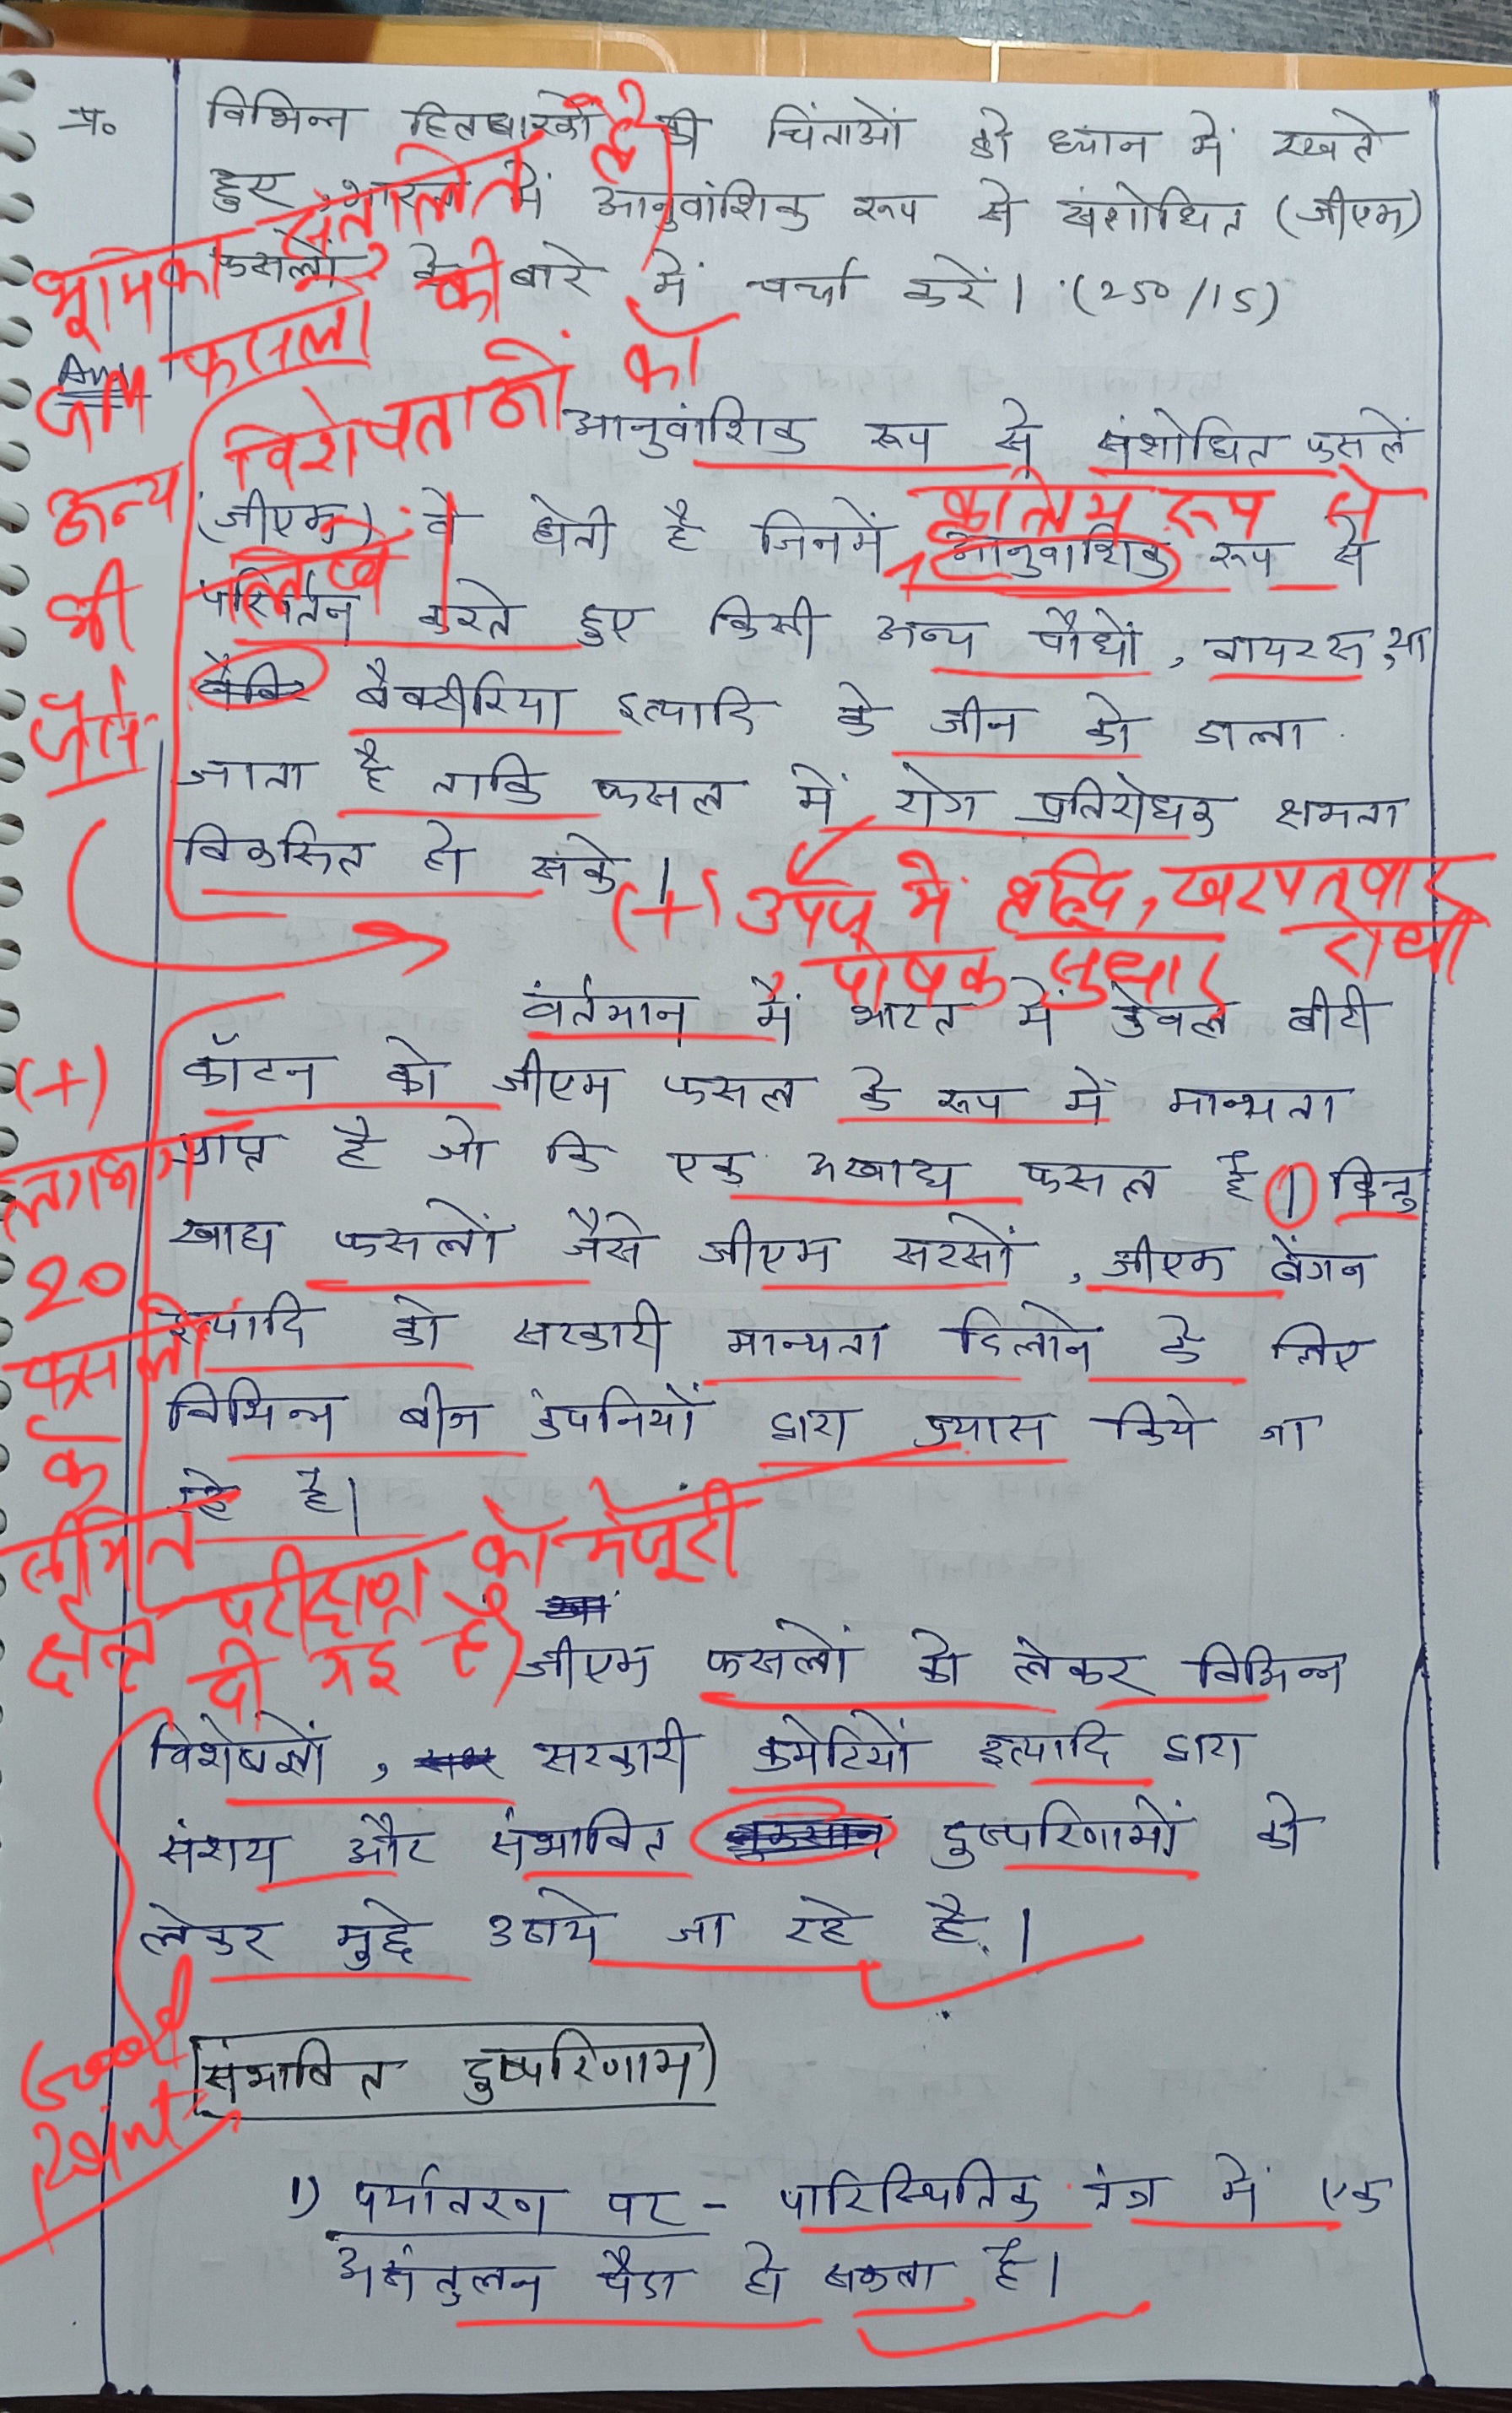 प्र० विभिन्न हितधारकों की चिंताओं को ध्यान में रखते
हुए, भारत में आनुवांशिक रूप से संशोधित (जीएम)
फसलों के बारे में चर्चा करें। (250/15)
Ans
भूमिका संतुलित है
जीएम फसलों की
अन्य विशेषताओं को
भी लिखें
जैसे-
आनुवांशिक रूप से संशोधित फसलें
(जीएम) वे होती है जिनमें आनुवांशिक रूप से
कृत्रिम रूप से
परिवर्तन करते हुए किसी अन्य पौधों, वायरस, या
बैक्टीरिया इत्यादि के जीन को डाला
जाता है ताकि फसल में रोग प्रतिरोधक क्षमता
विकसित हो सके।
(+) उपज में वृद्धि, खरपतवार रोधी
पोषक सुधार
वर्तमान में भारत में केवल बीटी
कॉटन को जीएम फसल के रूप में मान्यता
प्राप्त है जो कि एक अखाद्य फसल है। किन्तु
खाद्य फसलों जैसे जीएम सरसों, जीएम बैंगन
इत्यादि को सरकारी मान्यता दिलाने के लिए
विभिन्न बीज कंपनियों द्वारा प्रयास किये जा
रहे है।
(+)
लगभग
20
फसलों
के
सीमित
क्षेत्र परीक्षण को मंजूरी
दी गई है)
जीएम फसलों को लेकर विभिन्न
विशेषज्ञों, सरकारी कमेटियों इत्यादि द्वारा
संशय और संभावित नुकसान दुष्परिणामों को
लेकर मुद्दे उठाये जा रहे है।
Good
Point
संभावित दुष्परिणाम
1) पर्यावरण पर - पारिस्थितिक तंत्र में एक
असंतुलन पैदा हो सकता है।